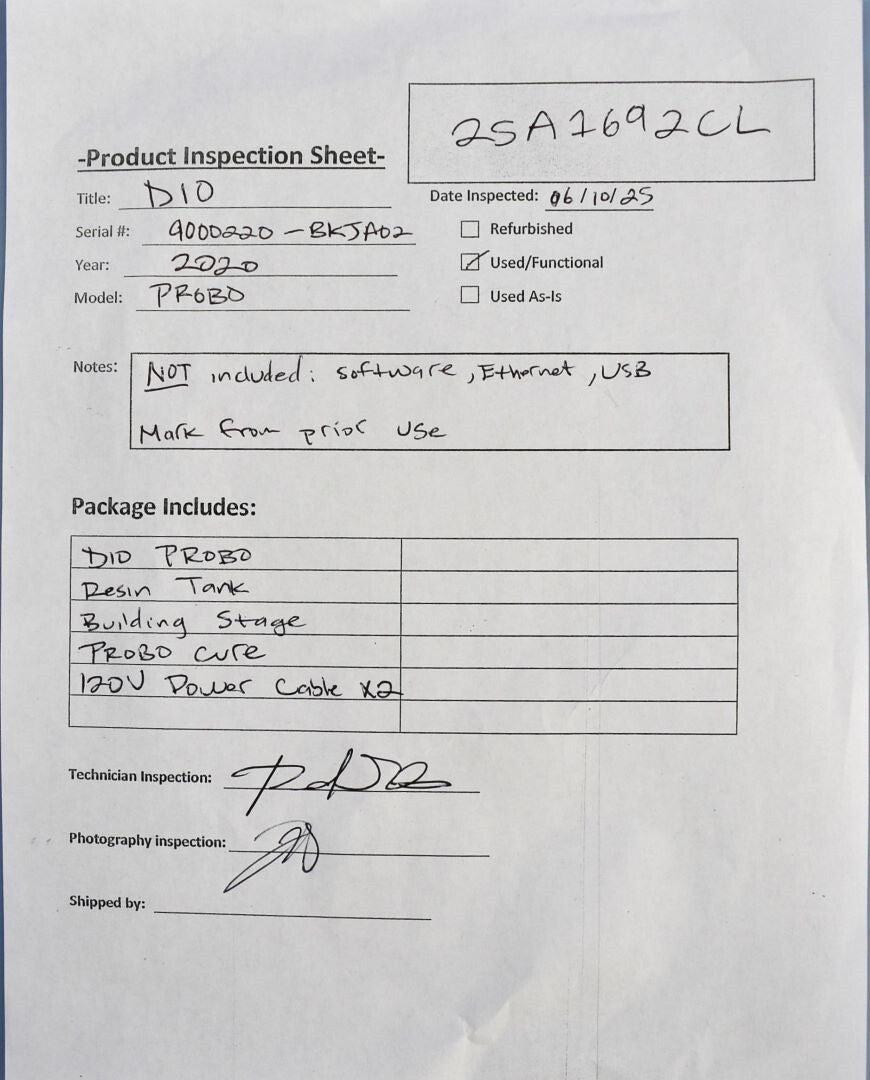 25A1692CL
-Product Inspection Sheet-
Title: DIO
Date Inspected: 06/10/25
Serial #: 9000220-BKJA02
Refurbished
Year: 2020
Used/Functional
Model: PROBO
Used As-Is
Notes: NOT included: software, Ethernet, USB
Mark from prior use
Package Includes:
DIO PROBO
Resin Tank
Building Stage
PROBO cure
120V Power Cable x2
Technician Inspection:
Photography inspection:
Shipped by: